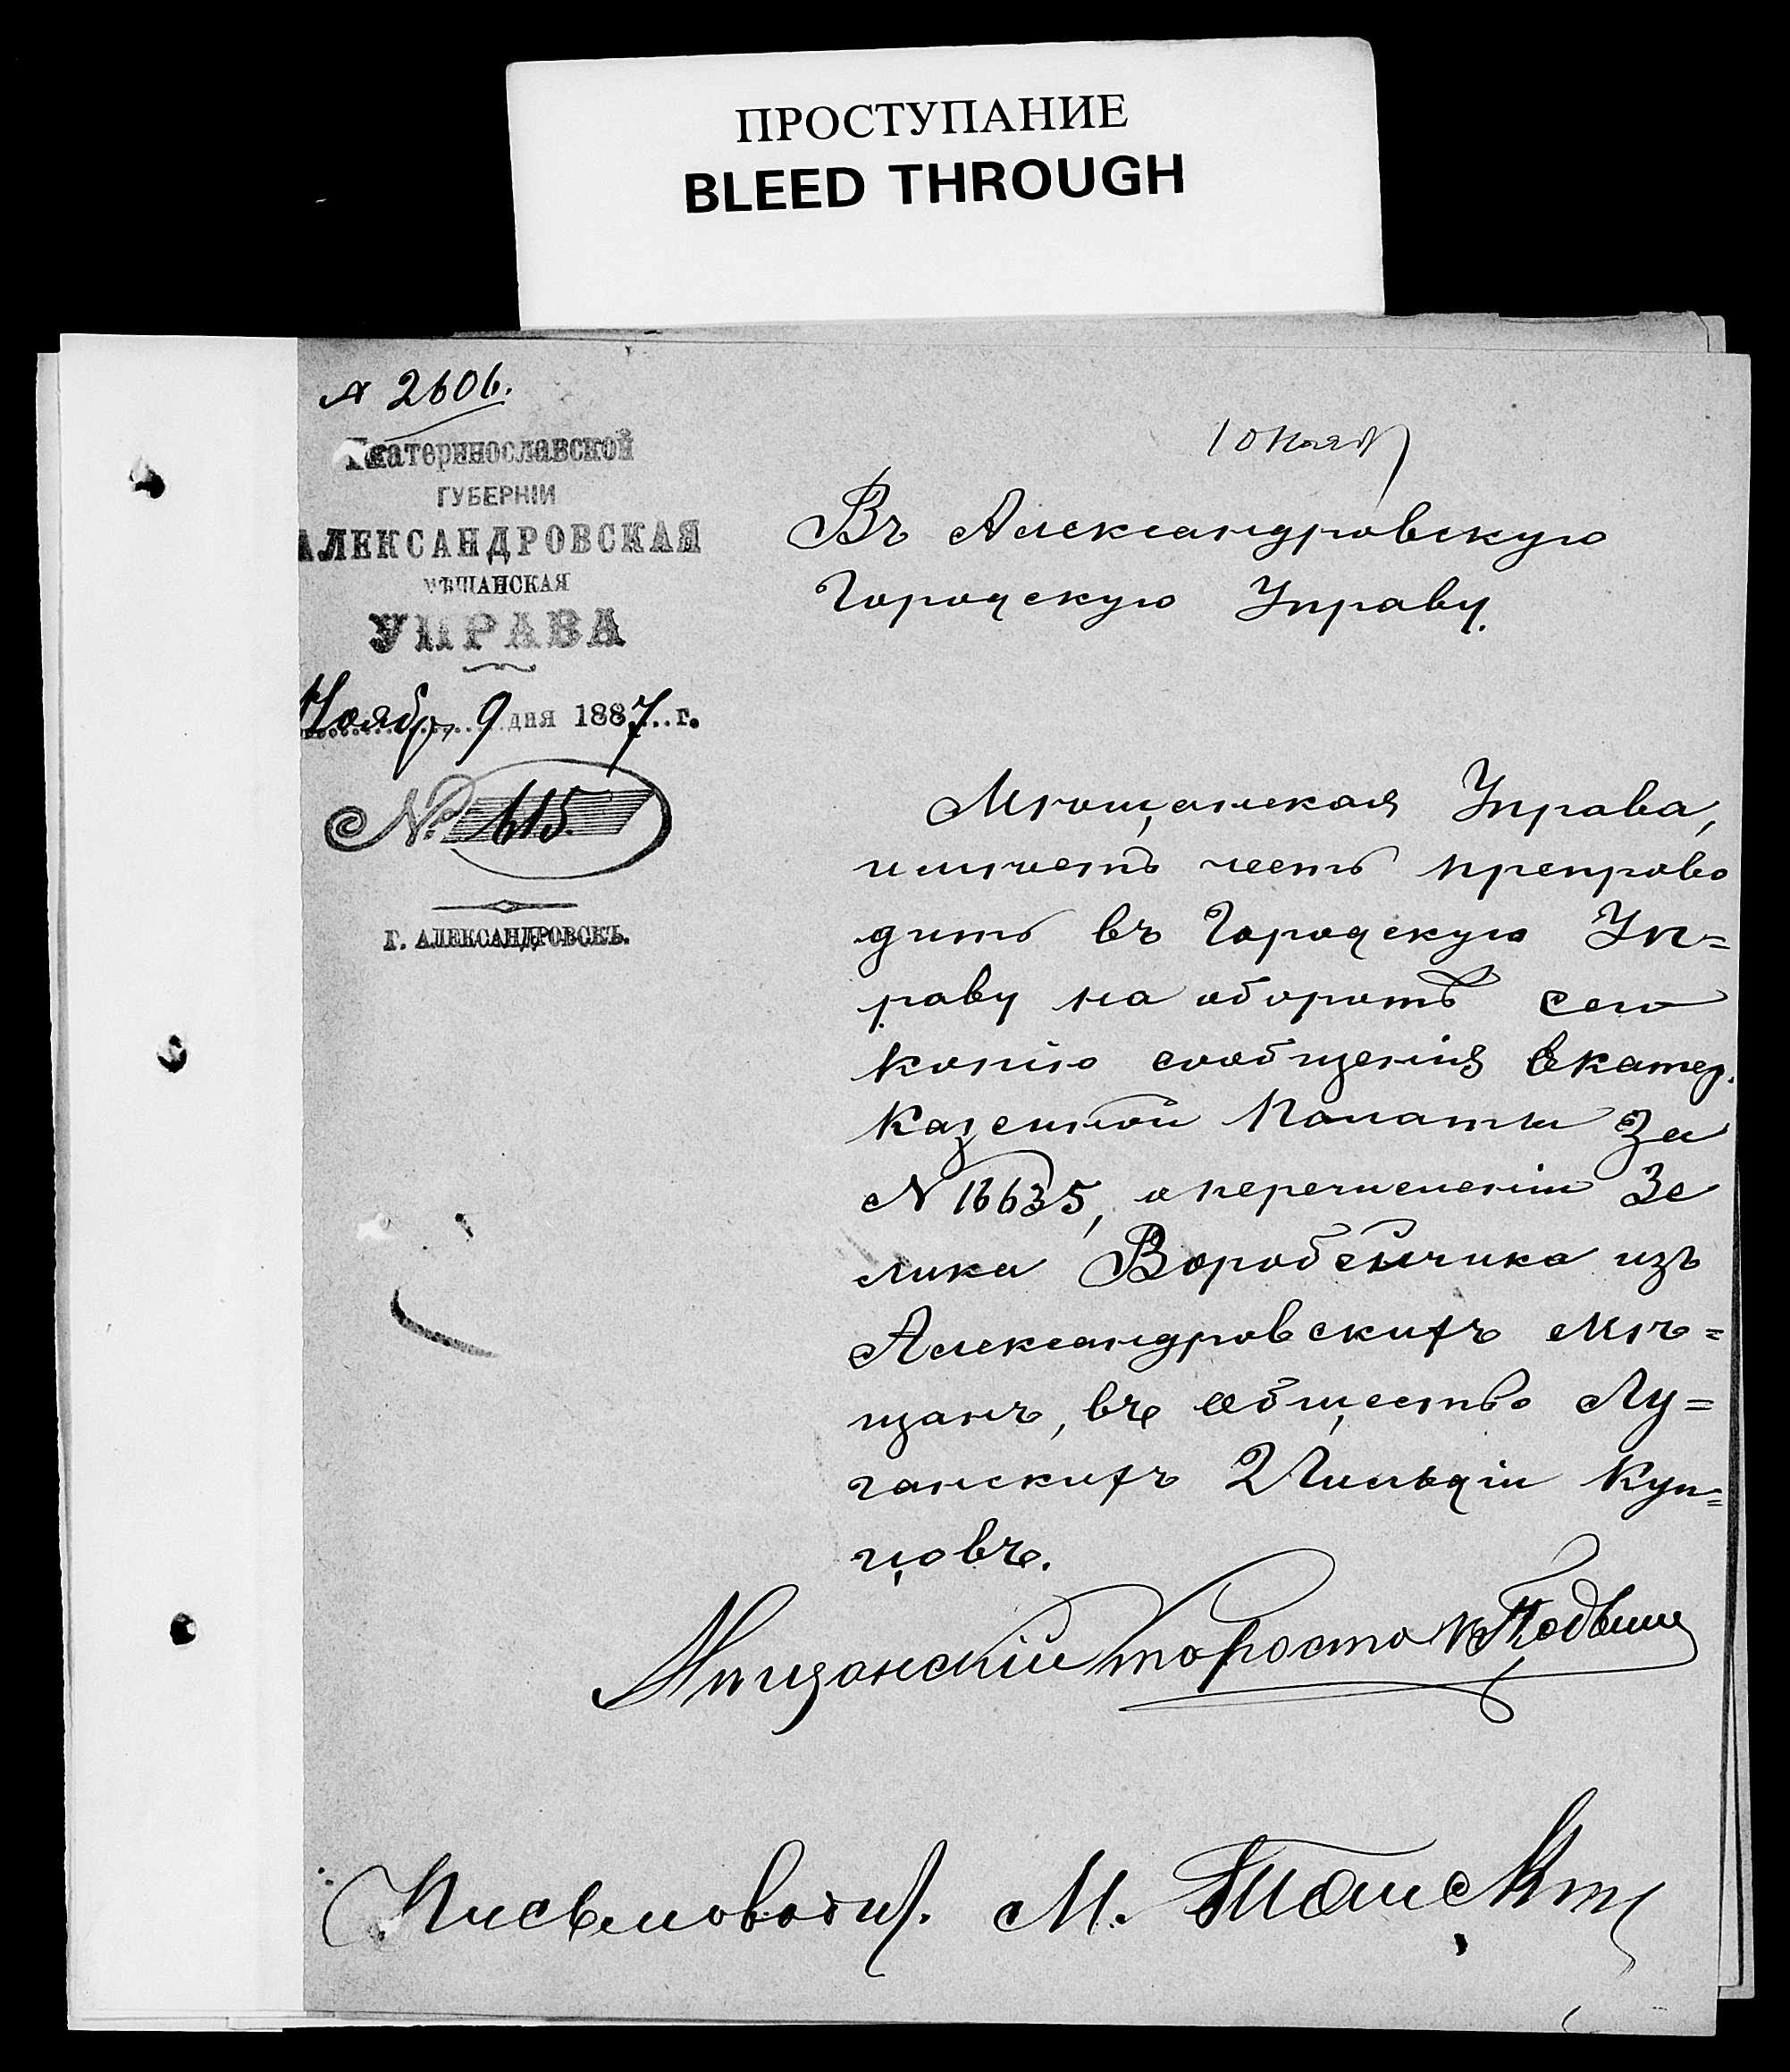 ПРОСТУПАНИЕ
BLEED THROUGH
№ 2606.
Екатеринославской
ГУБЕРНІИ
АЛЕКСАНДРОВСКАЯ
МѢЩАНСКАЯ
УПРАВА
Ноябр. 9 дня 1887 г.
№ 615
Г. АЛЕКСАНДРОВСКЪ.
10 Нояб
Въ Александровскую
Городскую Управу.
Мѣщанская Управа,
имѣетъ честь препрово
дить въ Городскую Уп=
раву на оборотѣ сего
копію сообщенія Екатер.
Казенной Палаты за
№ 16635, о перечисленіи Зе
лика Воробейчика изъ
Александровскихъ мѣ=
щанъ, въ общество Лу=
ганскихъ 2 Гильдіи Куп=
цовъ.
Мѣщанскій Староста
Письмоводит. М.